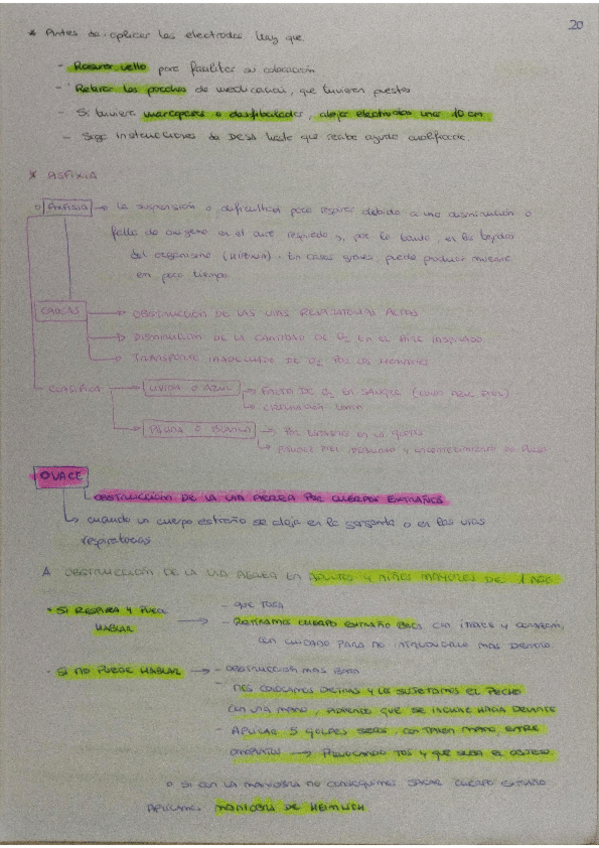 20
* Antes de aplicar los electrodos hay que
- Rasurar vello para facilitar su colocación
- Retirar los parches de medicación, que tuvieran puestos
- Si tuviere marcapasos o desfibrilador, alejar electrodos unos 10 cm
- Seguir instrucciones de DESA hasta que reciba ayuda cualificada.
* ASFIXIA
o ASFIXIA → la suspensión o dificultad para respirar debido a una disminución o
falta de oxígeno en el aire requerido y, por lo tanto, en los tejidos
del organismo (HIPOXIA). En casos graves, puede producir muerte
en poco tiempo
CAUSAS → OBSTRUCCIÓN DE LAS VÍAS RESPIRATORIAS ALTAS
→ DISMINUCIÓN DE LA CANTIDAD DE O2 EN EL AIRE INSPIRADO
→ TRANSPORTE INADECUADO DE O2 POR LOS HEMATÍES
CLASIFICA → LIVIDA O AZUL → FALTA DE O2 EN SANGRE
→ PÁLIDA O BLANCA →
OVACE
OBSTRUCCIÓN DE LA VIA AEREA POR CUERPOS EXTRAÑOS
↳ cuando un cuerpo extraño se aloja en la garganta o en las vías
respiratorias
A OBSTRUCCIÓN DE LA VIA AEREA EN ADULTOS Y NIÑOS MAYORES DE 1 AÑO
• SI RESPIRA Y PUEDE → - QUE TOSA
HABLAR - RETIRAMOS CUERPO EXTRAÑO con INDICE Y CORAZÓN,
con cuidado para no INTRODUCIRLO MAS DENTRO.
• SI NO PUEDE HABLAR → - OBSTRUCCION MAS
- NOS COLOCAMOS DETRAS Y LE SUJETAMOS EL PECHO
CON UNA MANO, HACIENDO QUE SE INCLINE HACIA DELANTE
- APLICAR 5 GOLPES SECOS, CON TALON MANO, ENTRE
OMOPLATOS → PROVOCANDO TOS Y QUE SALGA EL OBJETO.
o si con LA MANIOBRA NO CONSEGUIMOS SACAR CUERPO EXTRAÑO
APLICAMOS MANIOBRA DE HEIMLICH